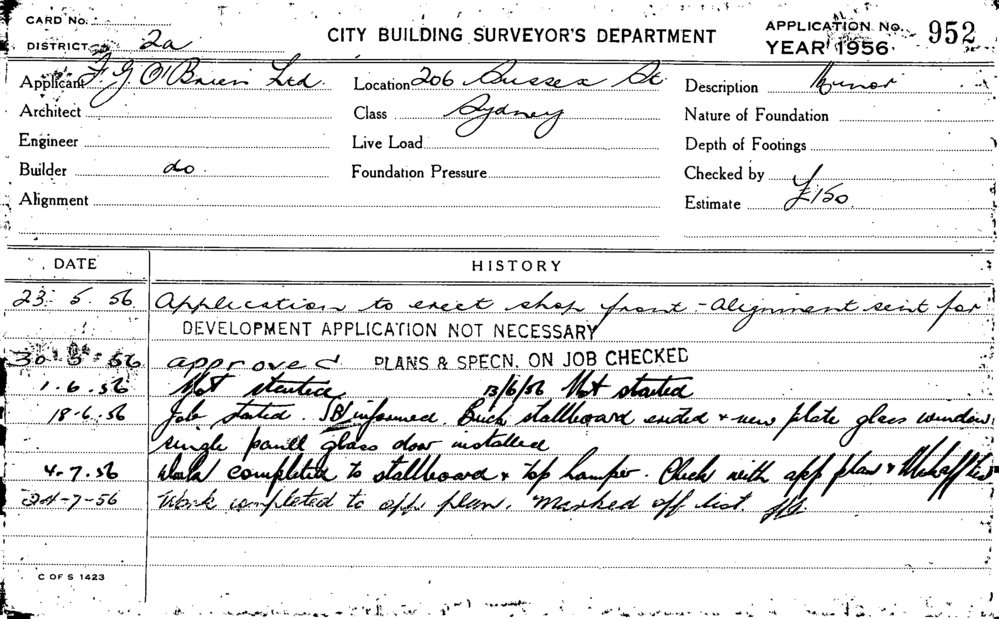 CARD No.
DISTRICT 2a
CITY BUILDING SURVEYOR'S DEPARTMENT
APPLICATION No. 952
YEAR 1956
Applicant F G O'Brien Ltd
Location 206 Sussex St
Description Minor
Architect
Class Sydney
Nature of Foundation
Engineer
Live Load
Depth of Footings
Builder do
Foundation Pressure
Checked by
Alignment
Estimate £150
DATE HISTORY
23. 5. 56 Application to erect shop front - Alignment sent for
DEVELOPMENT APPLICATION NOT NECESSARY
30 5 56 approved PLANS & SPECN. ON JOB CHECKED
1.6.56 Not started 13/6/56 Not started
18-6.56 Job stated. informed. Brick stallboard erected + new plate glass window
single panell glass door installed
4.7.56 Work completed to stallboard + top hamper. Check with app plan +
24-7-56 Work completed to app. plan. Marked off list.
C OF S 1423